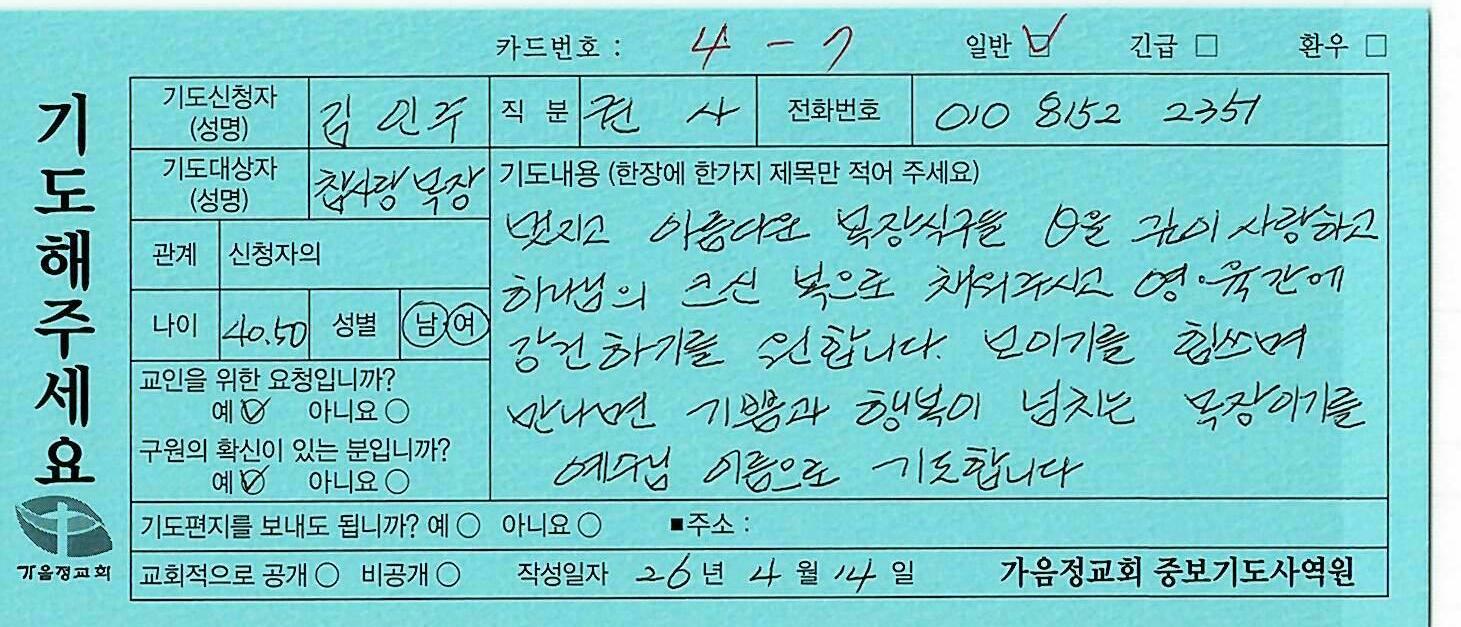 카드번호 : 4 - 7 일반 ☑ 긴급 □ 환우 □
기도해주세요
기도신청자 (성명) 김인주 직 분 권 사 전화번호 010 8152 2351
기도대상자 (성명) 찹사랑 목장
관계 신청자의
나이 40.50 성별 남 여
교인을 위한 요청입니까?
예 ☑ 아니요 ○
구원의 확신이 있는 분입니까?
예 ☑ 아니요 ○
기도내용 (한장에 한가지 제목만 적어 주세요)
멋지고 아름다운 목장식구들 을 사랑하고
하나님의 크신 복으로 채워주시고 영·육간에
강건하기를 원합니다. 모이기를 힘쓰며
만나면 기쁨과 행복이 넘치는 목장이기를
예수님 이름으로 기도합니다
기도편지를 보내도 됩니까? 예 ○ 아니요 ○ ■주소 :
교회적으로 공개 ○ 비공개 ○ 작성일자 26 년 4 월 14 일 가음정교회 중보기도사역원
가음정교회